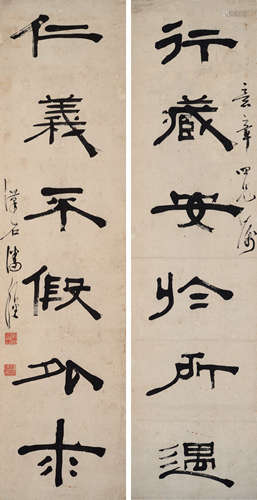 行藏安於所遇
意章四兄屬
仁義不假外求